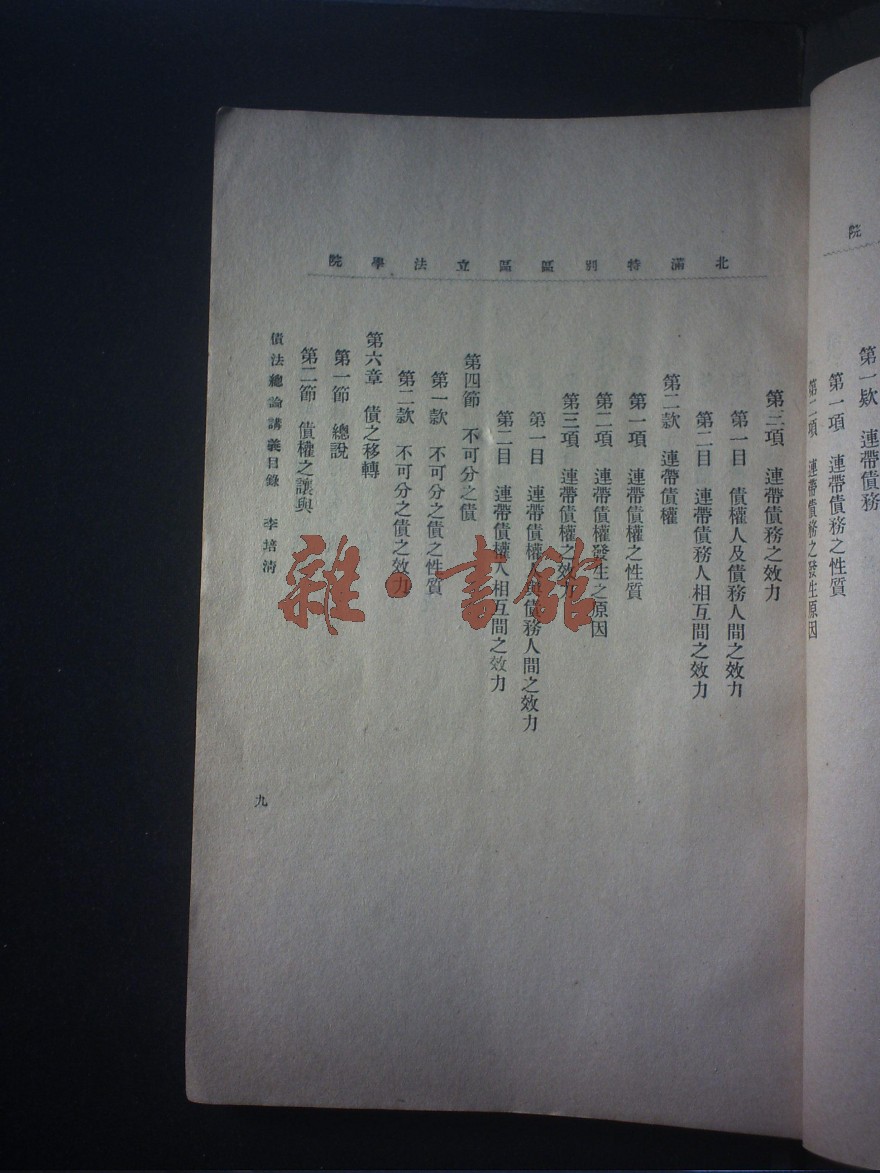 院
第一欵　連帶債務
第一項　連帶債務之性質
第二項　連帶債務之發生原因
北滿特別區區立法學院
第三項　連帶債務之效力
第一目　債權人及債務人間之效力
第二目　連帶債務人相互間之效力
第二款　連帶債權
第一項　連帶債權之性質
第二項　連帶債權發生之原因
第三項　連帶債權之效力
第一目　連帶債權人與債務人間之效力
第二目　連帶債權人相互間之效力
第四節　不可分之債
第一款　不可分之債之性質
第二款　不可分之債之效力
第六章　債之移轉
第一節　總說
第二節　債權之讓與
債法總論講義目錄　李培淸
九
雜·書館